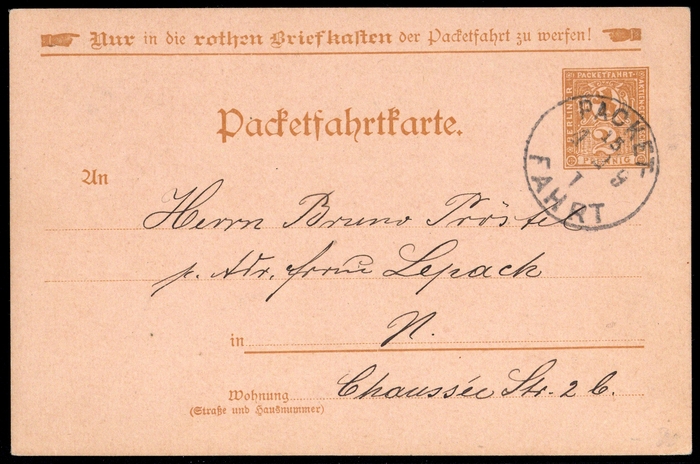 Nur in die rothen Briefkasten der Packetfahrt zu werfen!
BERLINER PACKETFAHRT
2
PFENNIG
PACKET
FAHRT
Packetfahrtkarte.
An
Herrn Bruno Pröstel
p. Adr. Frau Lepach
in N.
Wohnung Chaussée Str. 2 b.
(Straße und Hausnummer)